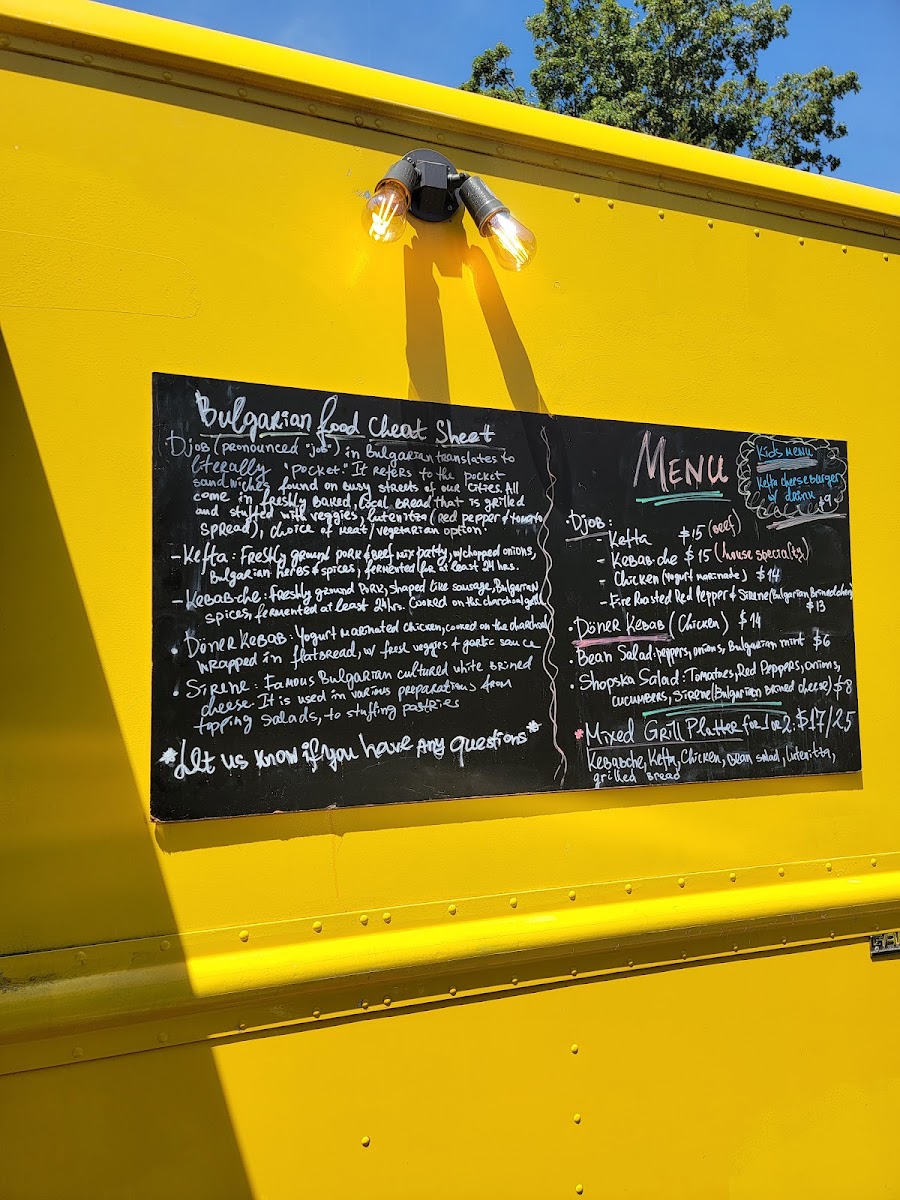 Bulgarian food Cheat Sheet
Djob (pronounced "job") in Bulgarian translates to
literally "pocket." It refers to the pocket
sandwiches found on busy streets of our cities. All
come in freshly baked, local bread that is grilled
and stuffed with veggies, lutenitza (red pepper & tomato
spread), choice of meat/vegetarian option.
- Kefta: Freshly ground pork & beef mix patty, w/chopped onions,
Bulgarian herbs & spices, fermented for at least 24 hrs.
- Kebab-che: Freshly ground pork, shaped like sausage, Bulgarian
spices, fermented at least 24 hrs. Cooked on the charcoal grill
• Döner Kebab: Yogurt marinated chicken, cooked on the charcoal
wrapped in flatbread, w/ fresh veggies & garlic sauce
• Sirene: Famous Bulgarian cultured white brined
cheese. It is used in various preparations from
topping salads, to stuffing pastries
*Let us know if you have any questions*
Menu
Kids Menu
Kefta cheeseburger
w/ drink
$9
• Djob:
- Kefta $15 (beef)
- Kebab-che $15 (house specialty)
- Chicken (yogurt marinade) $14
- Fire Roasted Red Pepper & Sirene (Bulgarian Brined cheese)
$13
• Döner Kebab (Chicken) $14
• Bean Salad: peppers, onions, Bulgarian mint $6
• Shopska Salad: Tomatoes, Red Peppers, onions,
cucumbers, Sirene (Bulgarian brined cheese) $8
*Mixed Grill Platter for 1 or 2: $17/25
Kebabche, Kefta, Chicken, Bean salad, lutenitza,
grilled bread